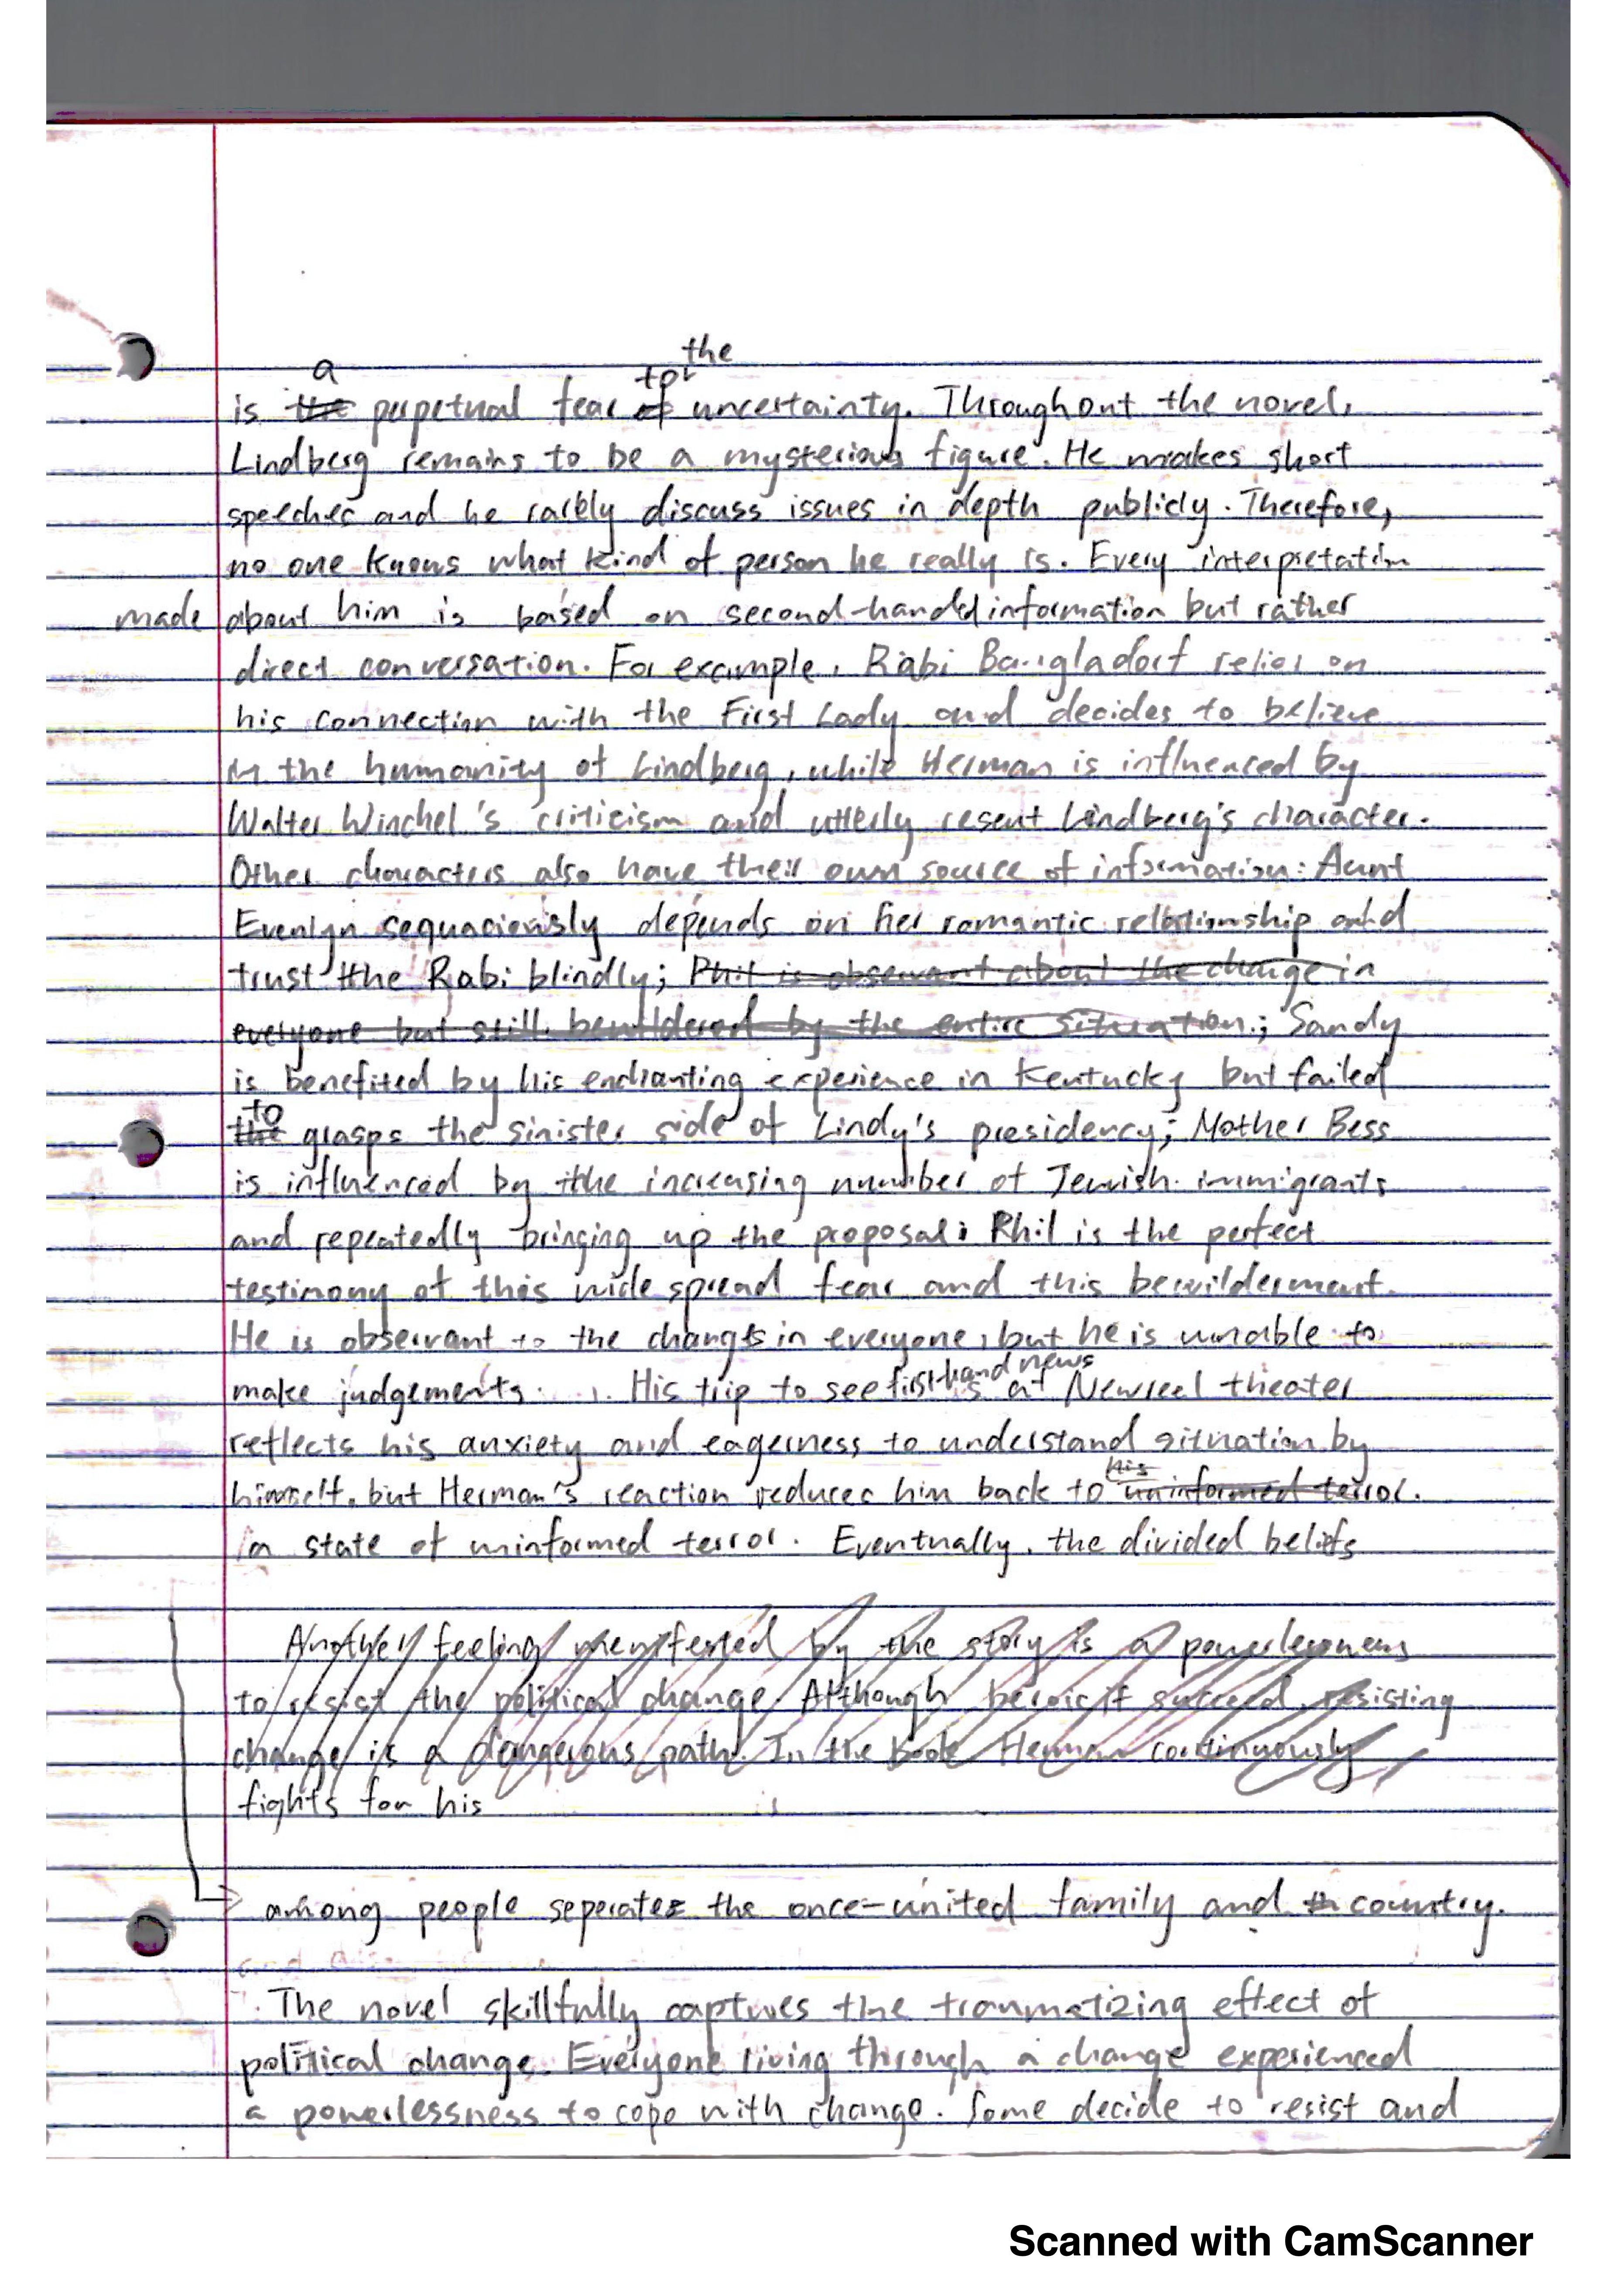 the
a for
is the perpetual fear of uncertainty. Throughout the novel,
Lindberg remains to be a mysterious figure. He makes short
speeches and he rarely discuss issues in depth publicly. Therefore,
no one knows what kind of person he really is. Every interpretation
made about him is based on second-handed information but rather
direct conversation. For example, Rabi Bangladorf relies on
his connection with the First Lady and decides to believe
in the humanity of Lindberg, while Herman is influenced by
Walter Winchel's criticism and utterly resent Lindberg's character.
Other characters also have their own source of information: Aunt
Evenlyn sequaciously depends on her romantic relationship and
trust the Rabi blindly; Phil is observant about the change in
everyone but still bewildered by the entire situation.; Sandy
is benefited by his enchanting experience in Kentucky but failed
to
the grasps the sinister side of Lindy's presidency; Mother Bess
is influenced by the increasing number of Jewish immigrants
and repeatedly bringing up the proposal; Phil is the perfect
testimony of this wide spread fear and this bewilderment.
He is observant to the changes in everyone, but he is unable to
make judgements. His trip to see first-hand news at Newsreel theater
reflects his anxiety and eagerness to understand situation by
his
himself, but Herman's reaction reduces him back to uninformed terror.
in state of uninformed terror. Eventually, the divided beliefs
Another feeling menifested by the story is a powerlessness
to resist the political change. Although heroic if succeed, resisting
change is a dangerous path. In the Book Herman continuously
fights for his
among people seperates the once-united family and th country.
The novel skillfully captures the traumatizing effect of
political change. Everyone living through a change experienced
a powerlessness to cope with change. Some decide to resist and
Scanned with CamScanner